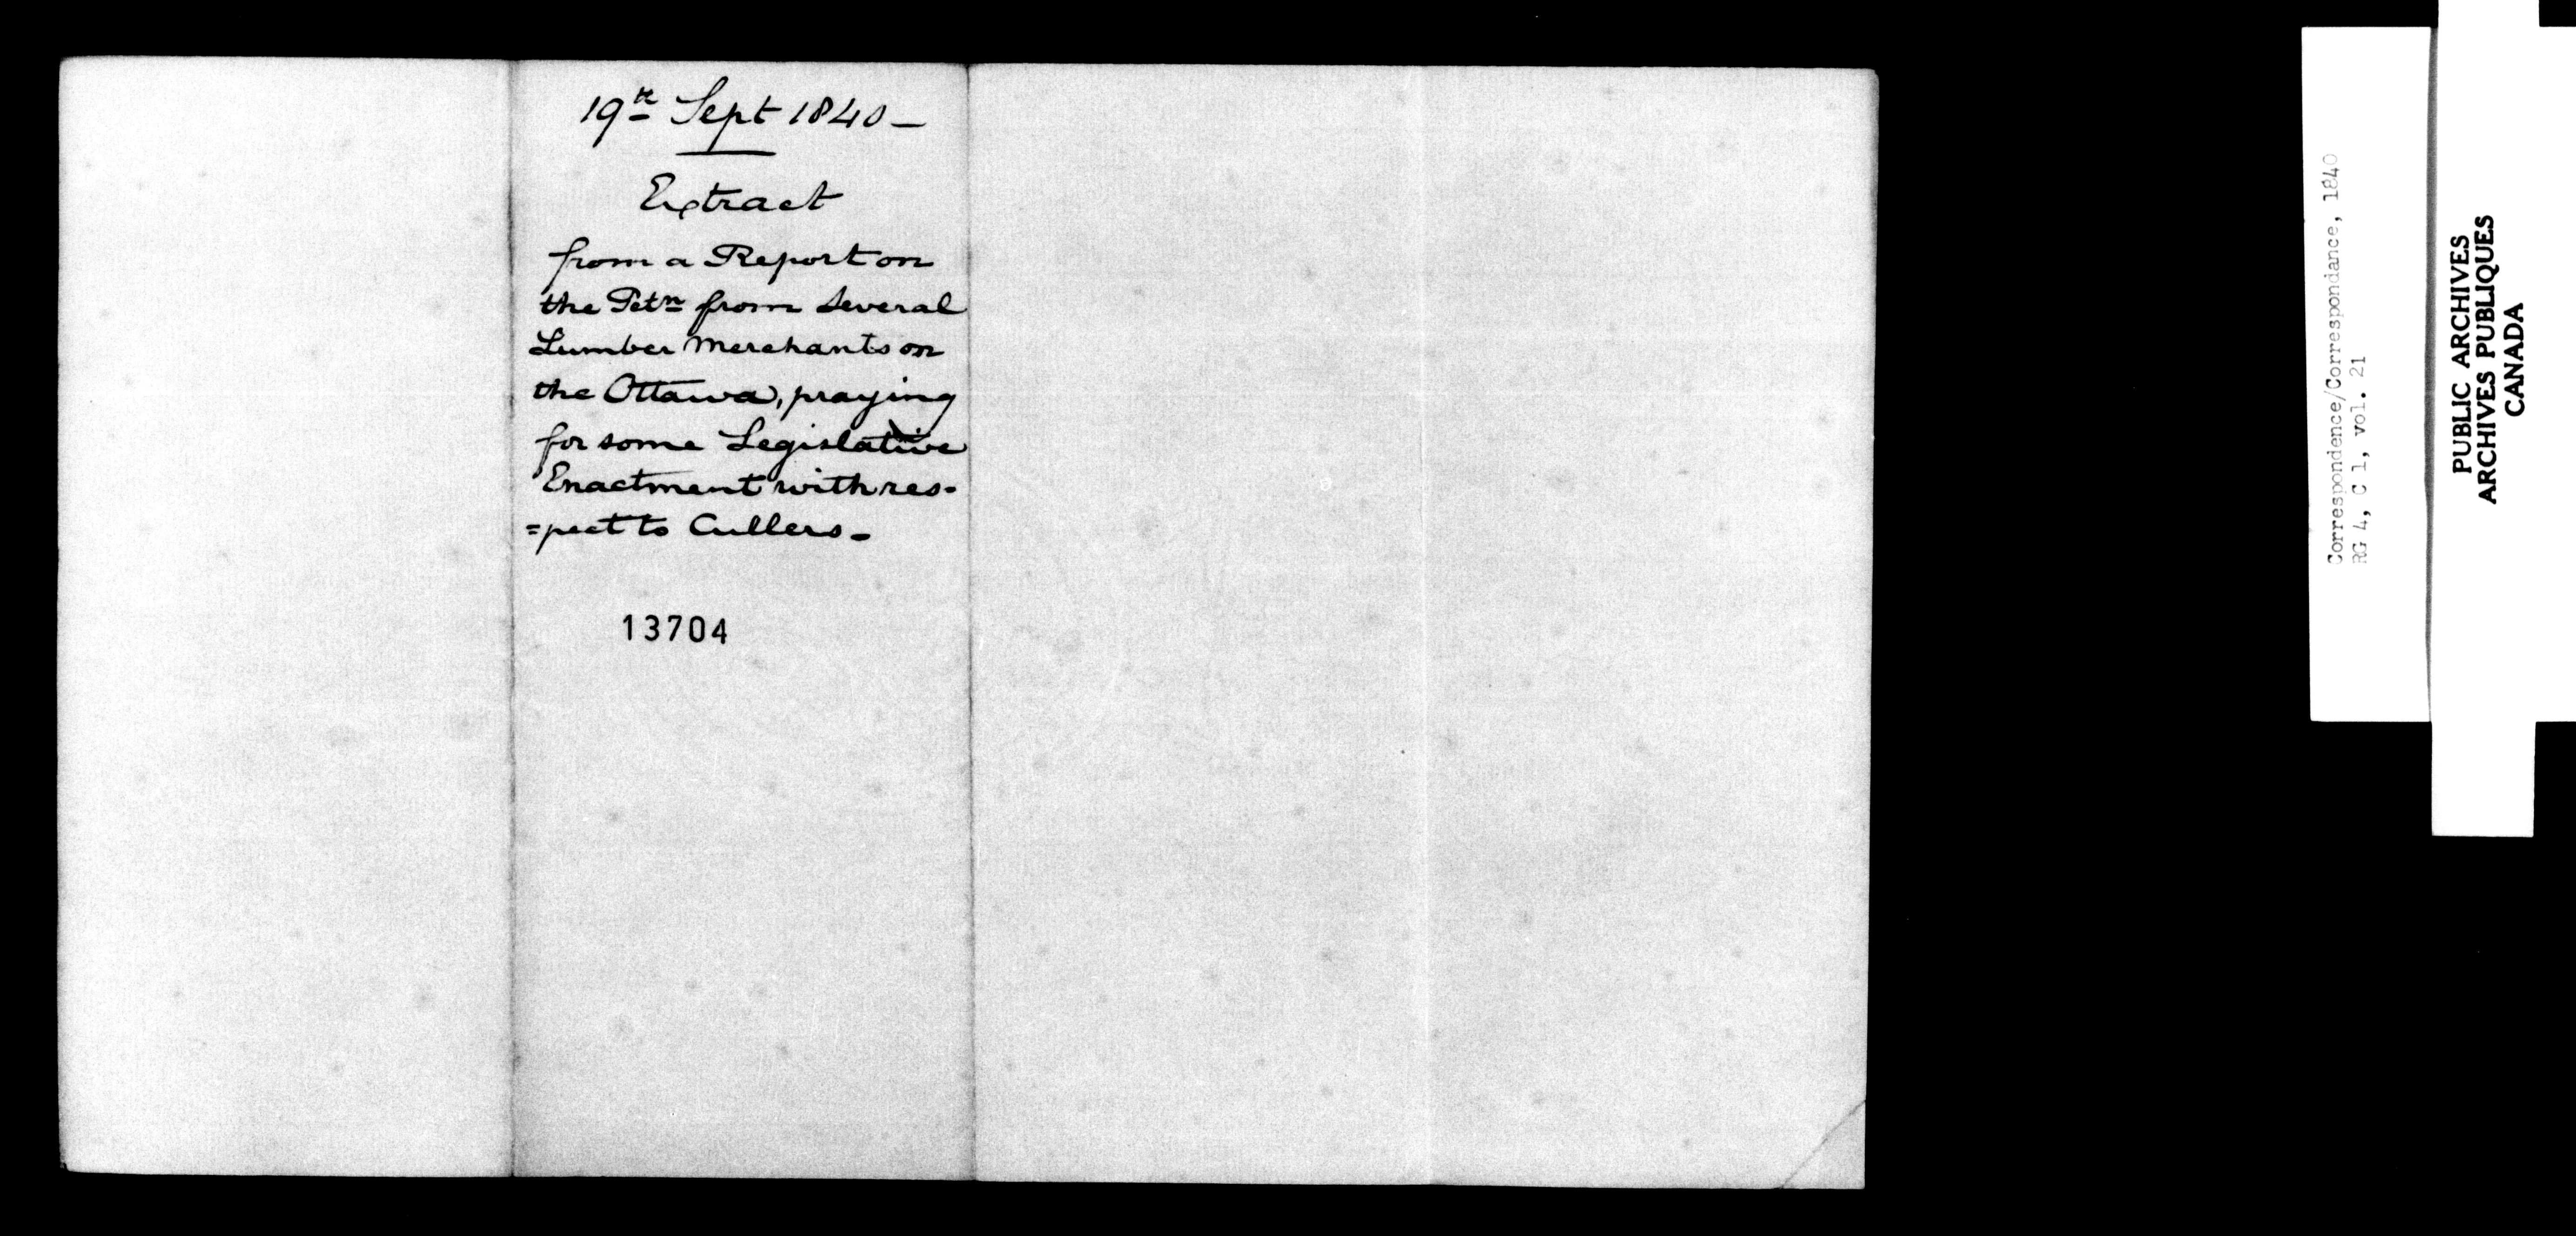 19th Sept 1840 —
Extract
from a Report on
the Petn from several
Lumber Merchants on
the Ottawa, praying
for some Legislative
Enactment with res-
=pect to Cullers —
13704
Correspondence/Correspondance, 1840
RG 4, C 1, vol. 21
PUBLIC ARCHIVES
ARCHIVES PUBLIQUES
CANADA